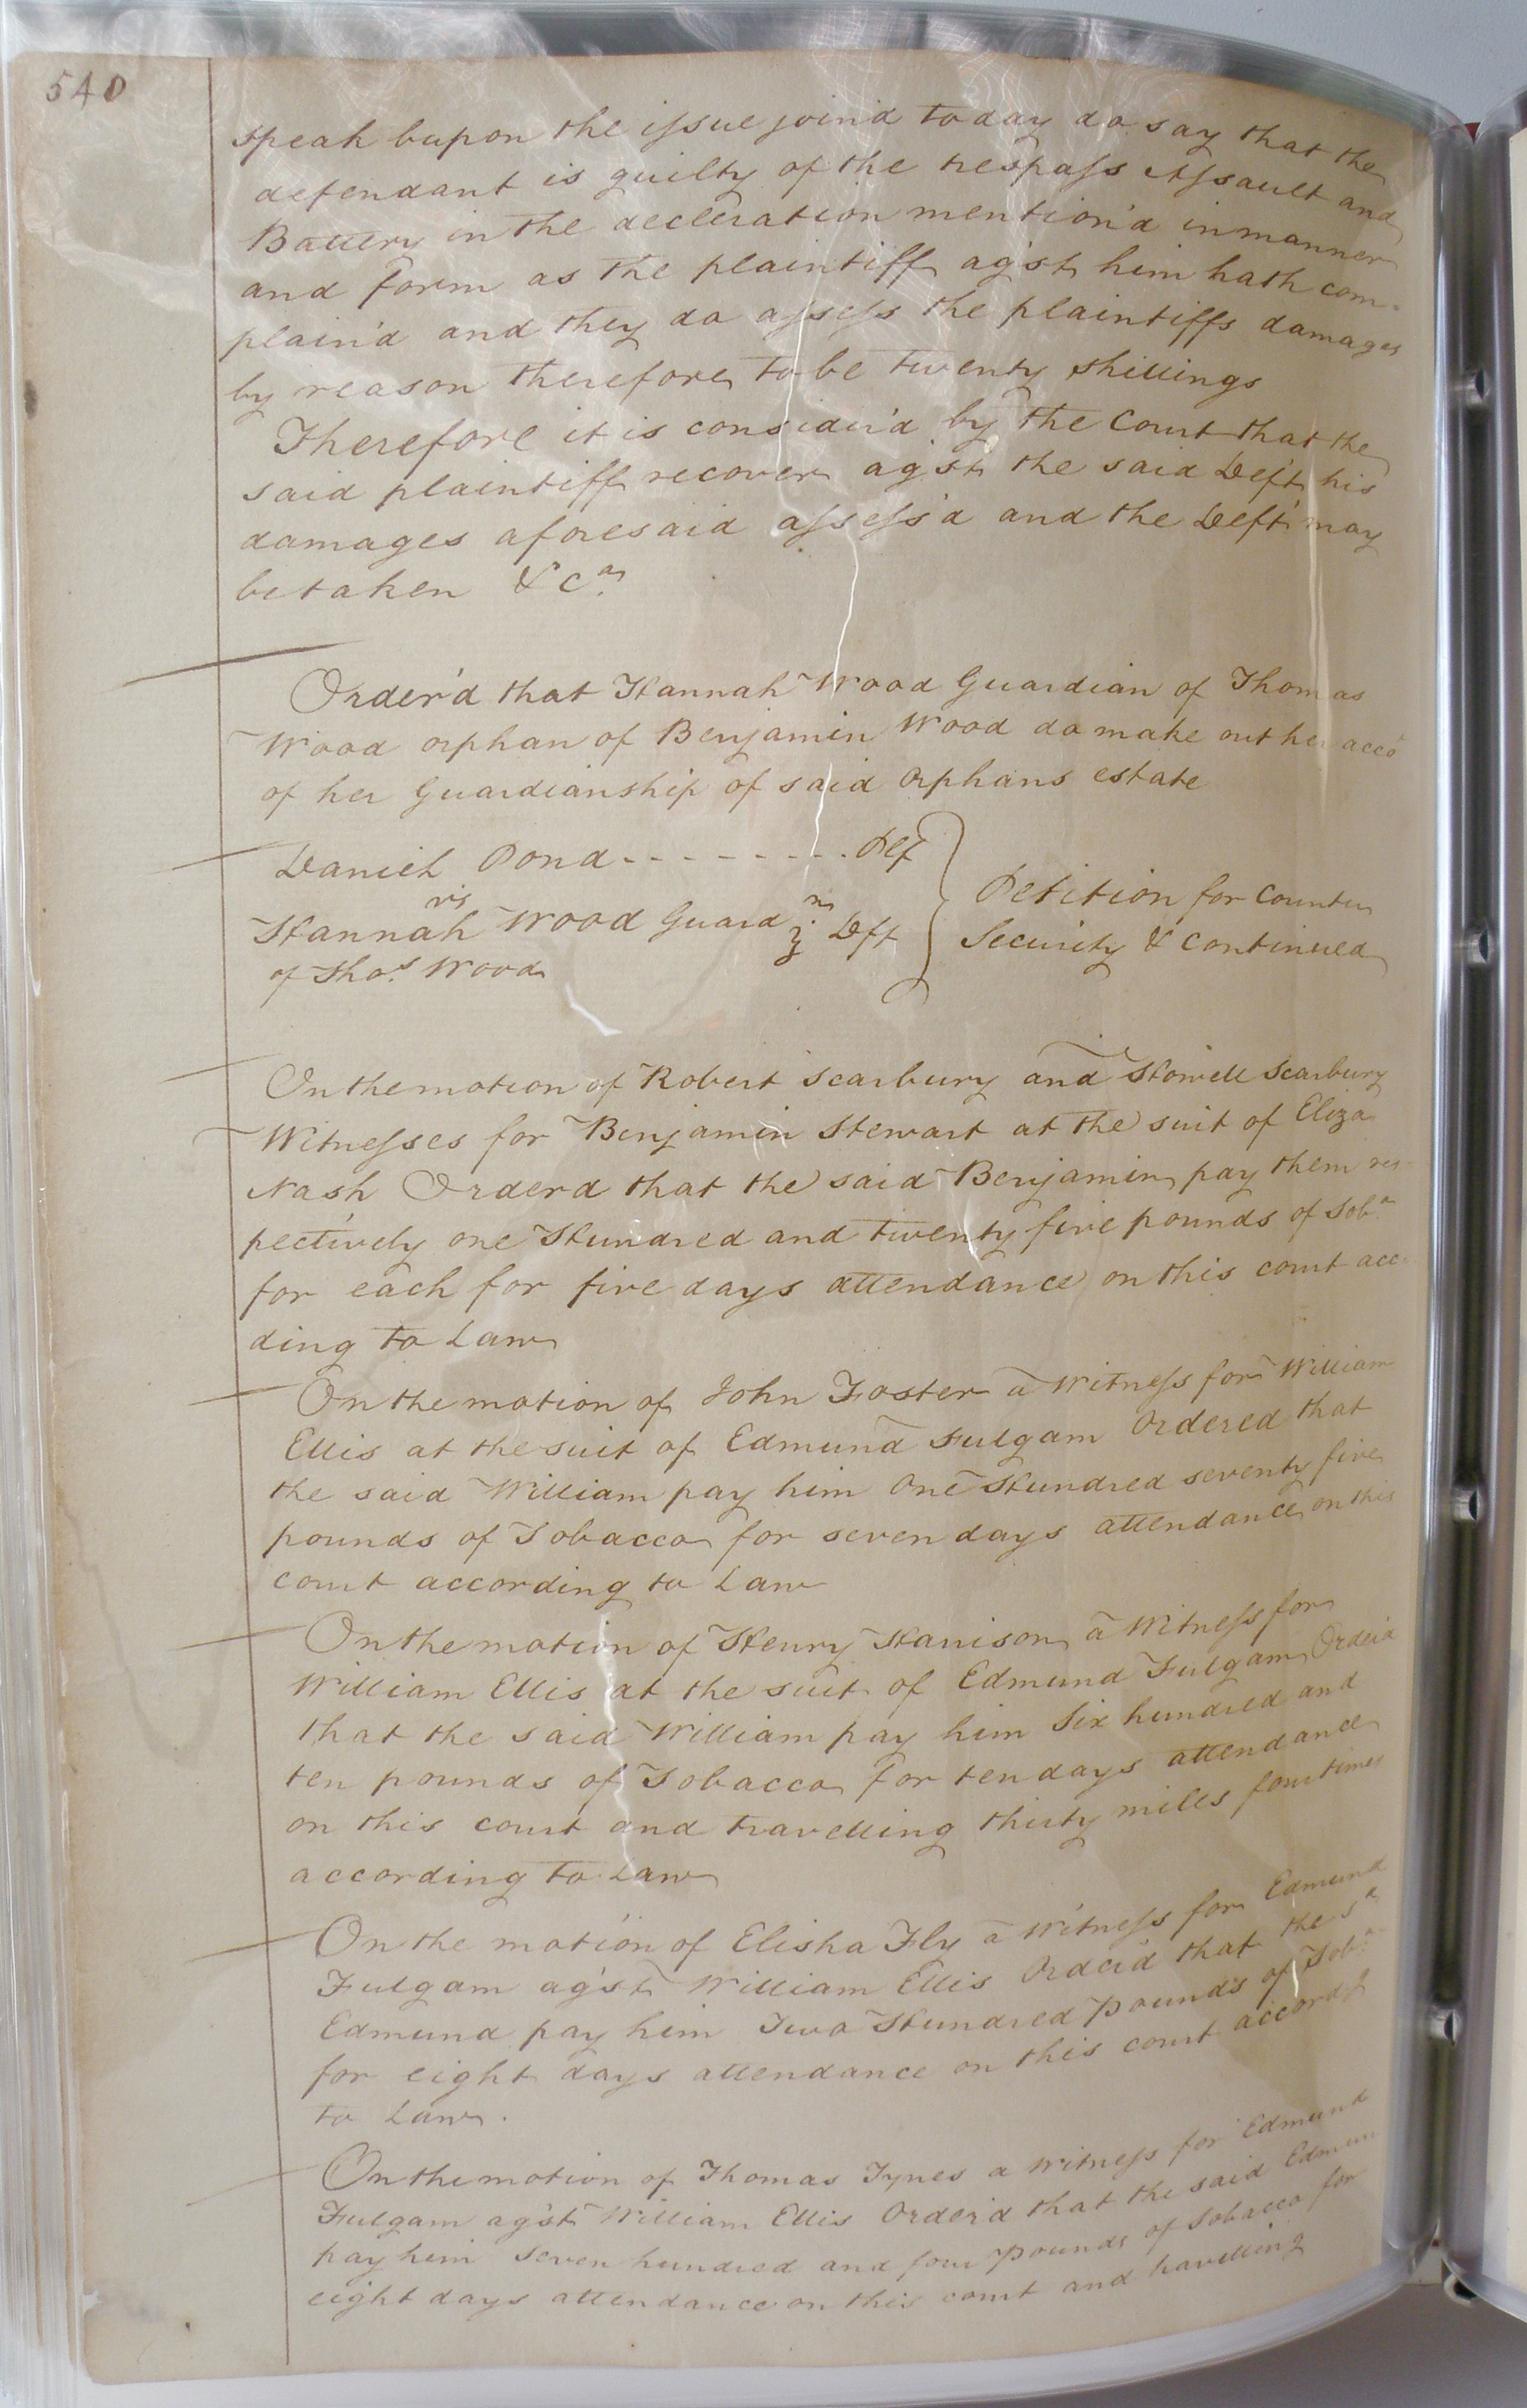 540
speak bupon the issue join'd today do say that the
defendant is guilty of the trespass Assault and
Battery in the decleration mention'd in manner
and form as the plaintiff ag'st him hath com-
plain'd and they do assess the plaintiffs damages
by reason therefore to be twenty shillings
Therefore it is consider'd by the Court that the
said plaintiff recover ag'st the said Deft his
damages aforesaid assess'd and the Deft may
be taken &ca
Order'd that Hannah Wood Guardian of Thomas
Wood orphan of Benjamin Wood do make out her acco
of her Guardianship of said Orphans estate
Daniel Pond - - - - - - - - Plf
vs
Hannah Wood Guardn Dft
of Thos. Wood
Petition for Counter
Security & Continued
On the motion of Robert Scarbury and Howell Scarbury
Witnesses for Benjamin Stewart at the suit of Eliza
Nash Orderd that the said Benjamin pay them res-
pectively one Hundred and twenty five pounds of Toba
for each for five days attendance on this court acc
ding to Law
On the motion of John Foster a Witness for William
Ellis at the suit of Edmund Fulgam Ordered that
the said William pay him One Hundred seventy five
pounds of Tobacco for seven days attendance on this
court according to Law
On the motion of Henry Harrison a Witness for
William Ellis at the suit of Edmund Fulgam Order'd
that the said William pay him Six hundred and
ten pounds of Tobacco for ten days attendance
on this court and travelling thirty miles four times
according to Law
On the motion of Elisha Fly a Witness for Edmund
Fulgam ag'st William Ellis Order'd that the sd
Edmund pay him Two Hundred Pounds of Toba
for eight days attendance on this court accordg
to Law.
On the motion of Thomas Tynes a Witness for Edmund
Fulgam ag'st William Ellis Order'd that the said Edmun
pay him seven hundred and four Pounds of Tobacco for
eight days attendance on this court and travelling